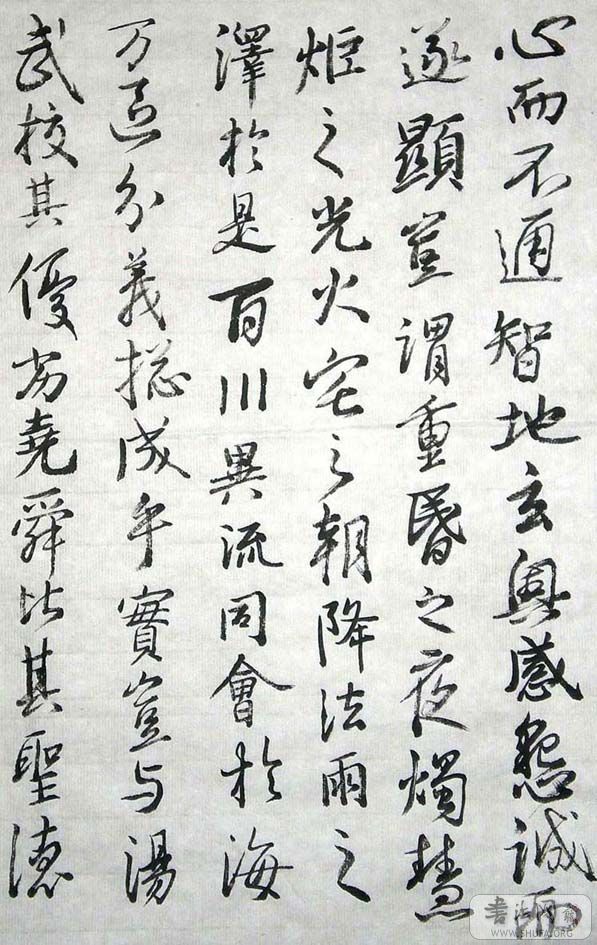 心而不通智地玄奧感懇誠而
遂顯豈謂重昏之夜燭慧
炬之光火宅之朝降法雨之
澤於是百川異流同會於海
万區分義揔成乎實豈与湯
武校其優劣堯舜比其聖德
书法网
WWW.SHUFA.ORG